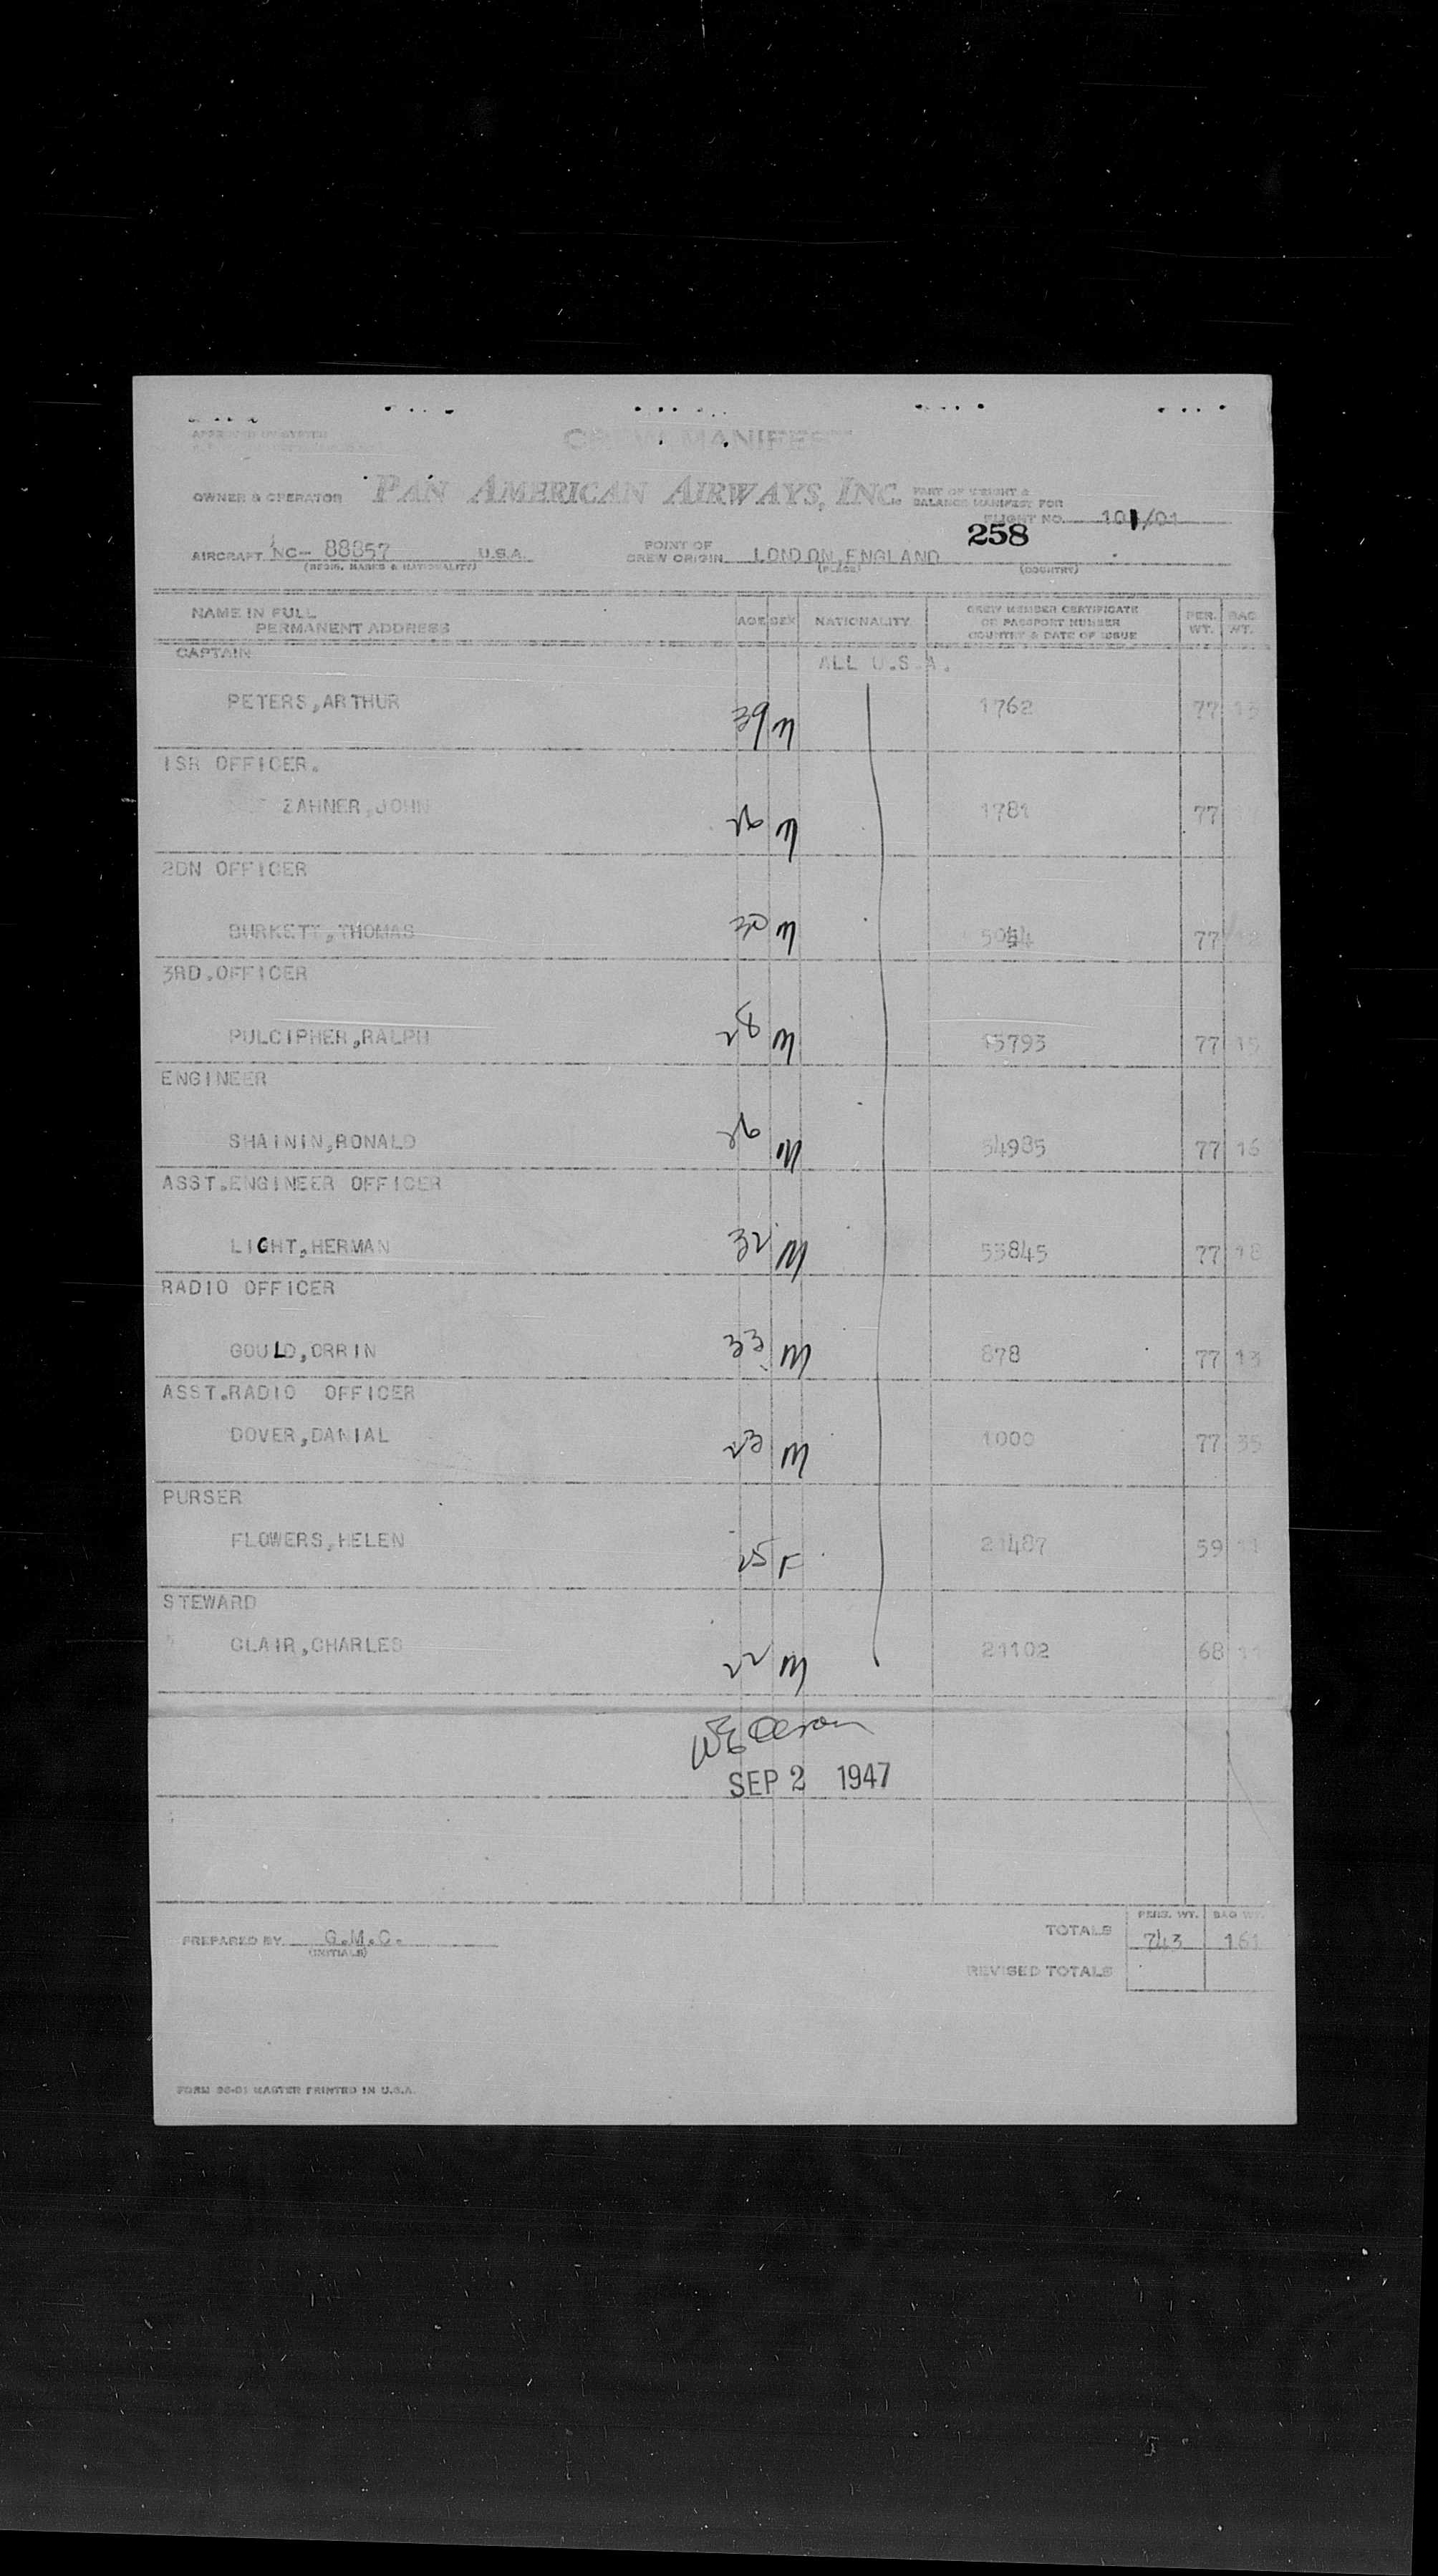 CREW MANIFEST
OWNER & OPERATOR PAN AMERICAN AIRWAYS, INC. PART OF WEIGHT &
BALANCE MANIFEST FOR
FLIGHT NO. 101/01
258
AIRCRAFT NC- 88857 U.S.A. POINT OF
CREW ORIGIN LONDON, ENGLAND
(REGIS. MARKS & NATIONALITY) (PLACE) (COUNTRY)
NAME IN FULL
PERMANENT ADDRESS AGE SEX NATIONALITY CREW MEMBER CERTIFICATE
OR PASSPORT NUMBER
COUNTRY & DATE OF ISSUE PER.
WT. BAG
WT.
CAPTAIN ALL U.S.A.
PETERS,ARTHUR 39 M 1762 77 13
1SR OFFICER.
ZAHNER,JOHN 26 M 1781 77
2DN OFFICER
BURKETT,THOMAS 30 M 77
3RD.OFFICER
PULCIPHER,RALPH 28 M 15793 77 15
ENGINEER
SHAININ,RONALD 26 M 54985 77 16
ASST.ENGINEER OFFICER
LIGHT,HERMAN 32 M 53845 77 18
RADIO OFFICER
GOULD,ORRIN 33 M 878 77 13
ASST.RADIO OFFICER
DOVER,DANIAL 23 M 1000 77 35
PURSER
FLOWERS,HELEN 25 F 21487 59
STEWARD
CLAIR,CHARLES 22 M 21102 68
SEP 2 1947
PERS. WT. BAG WT.
PREPARED BY G.M.C. TOTALS 743 161
(INITIALS)
REVISED TOTALS
FORM 96-01 MASTER PRINTED IN U.S.A.